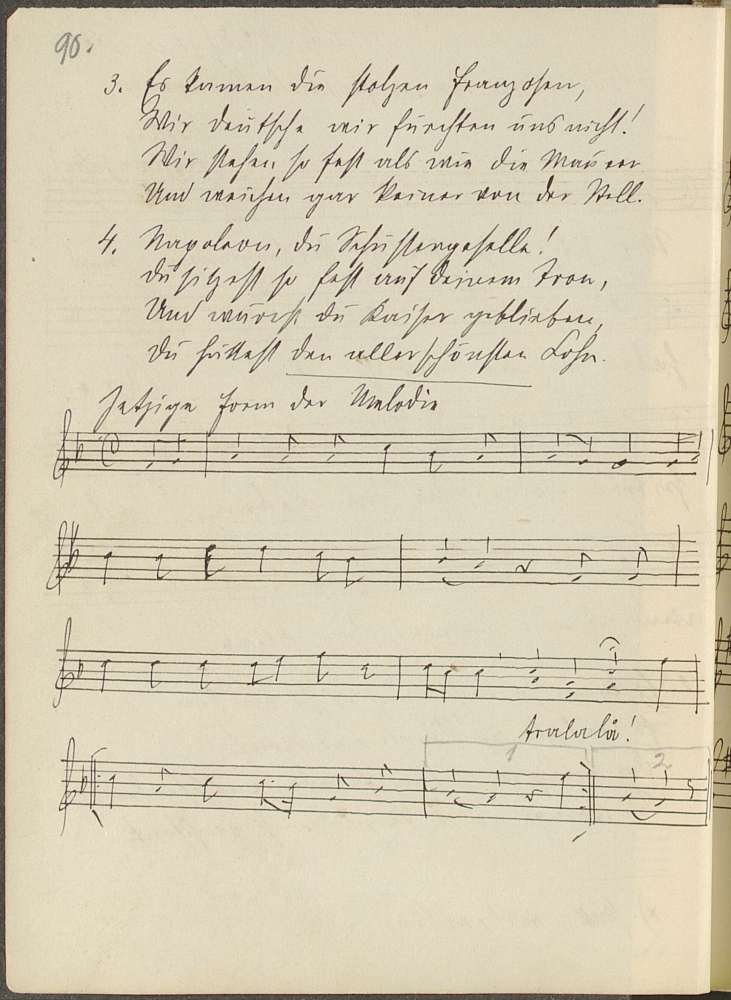 90.
3. Es kamen die stolzen Franzosen,
Wir deutsche wir fürchten uns nicht!
Wir stehen so fest als wie die Mauern
Und weichen gar keiner von der Stell.
4. Napoleon, du Schustergeselle!
du sitzest so fest auf deinem Tron,
Und wärest du Kaiser geblieben,
du hättest den allerschönsten Lohn.
Jetzige Form der Melodie
tralalå!
1 2